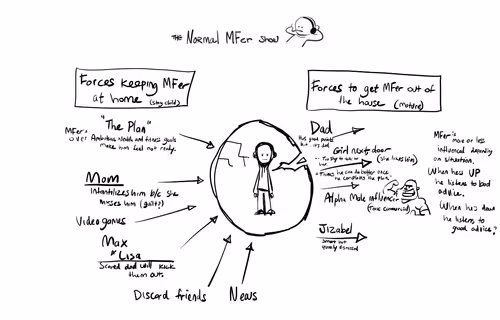 THE NORMAL MFER SHOW
Forces keeping MFer
at home (stay child)
"The Plan"
MFer's
over Ambitious health and fitness goals
make him feel not ready.
Mom
Infantilizes him b/c she
misses him (guilt?)
Videogames
Max
& Lisa
Scared dad will kick
them out.
Discord friends
News
Forces to get MFer out of
the house (mature)
Dad
Has good points
but... it's dad
Girl next door
(she likes him)
Too shy to
Thinks he can do better once
he completes the plan.
Alpha Male influencer
Jizabel
Smart but
easily dismissed
MFer is
more or less
influenced depending
on situation.
When he's UP
he listens to bad
advice.
When he's down
he listens
to good advice?